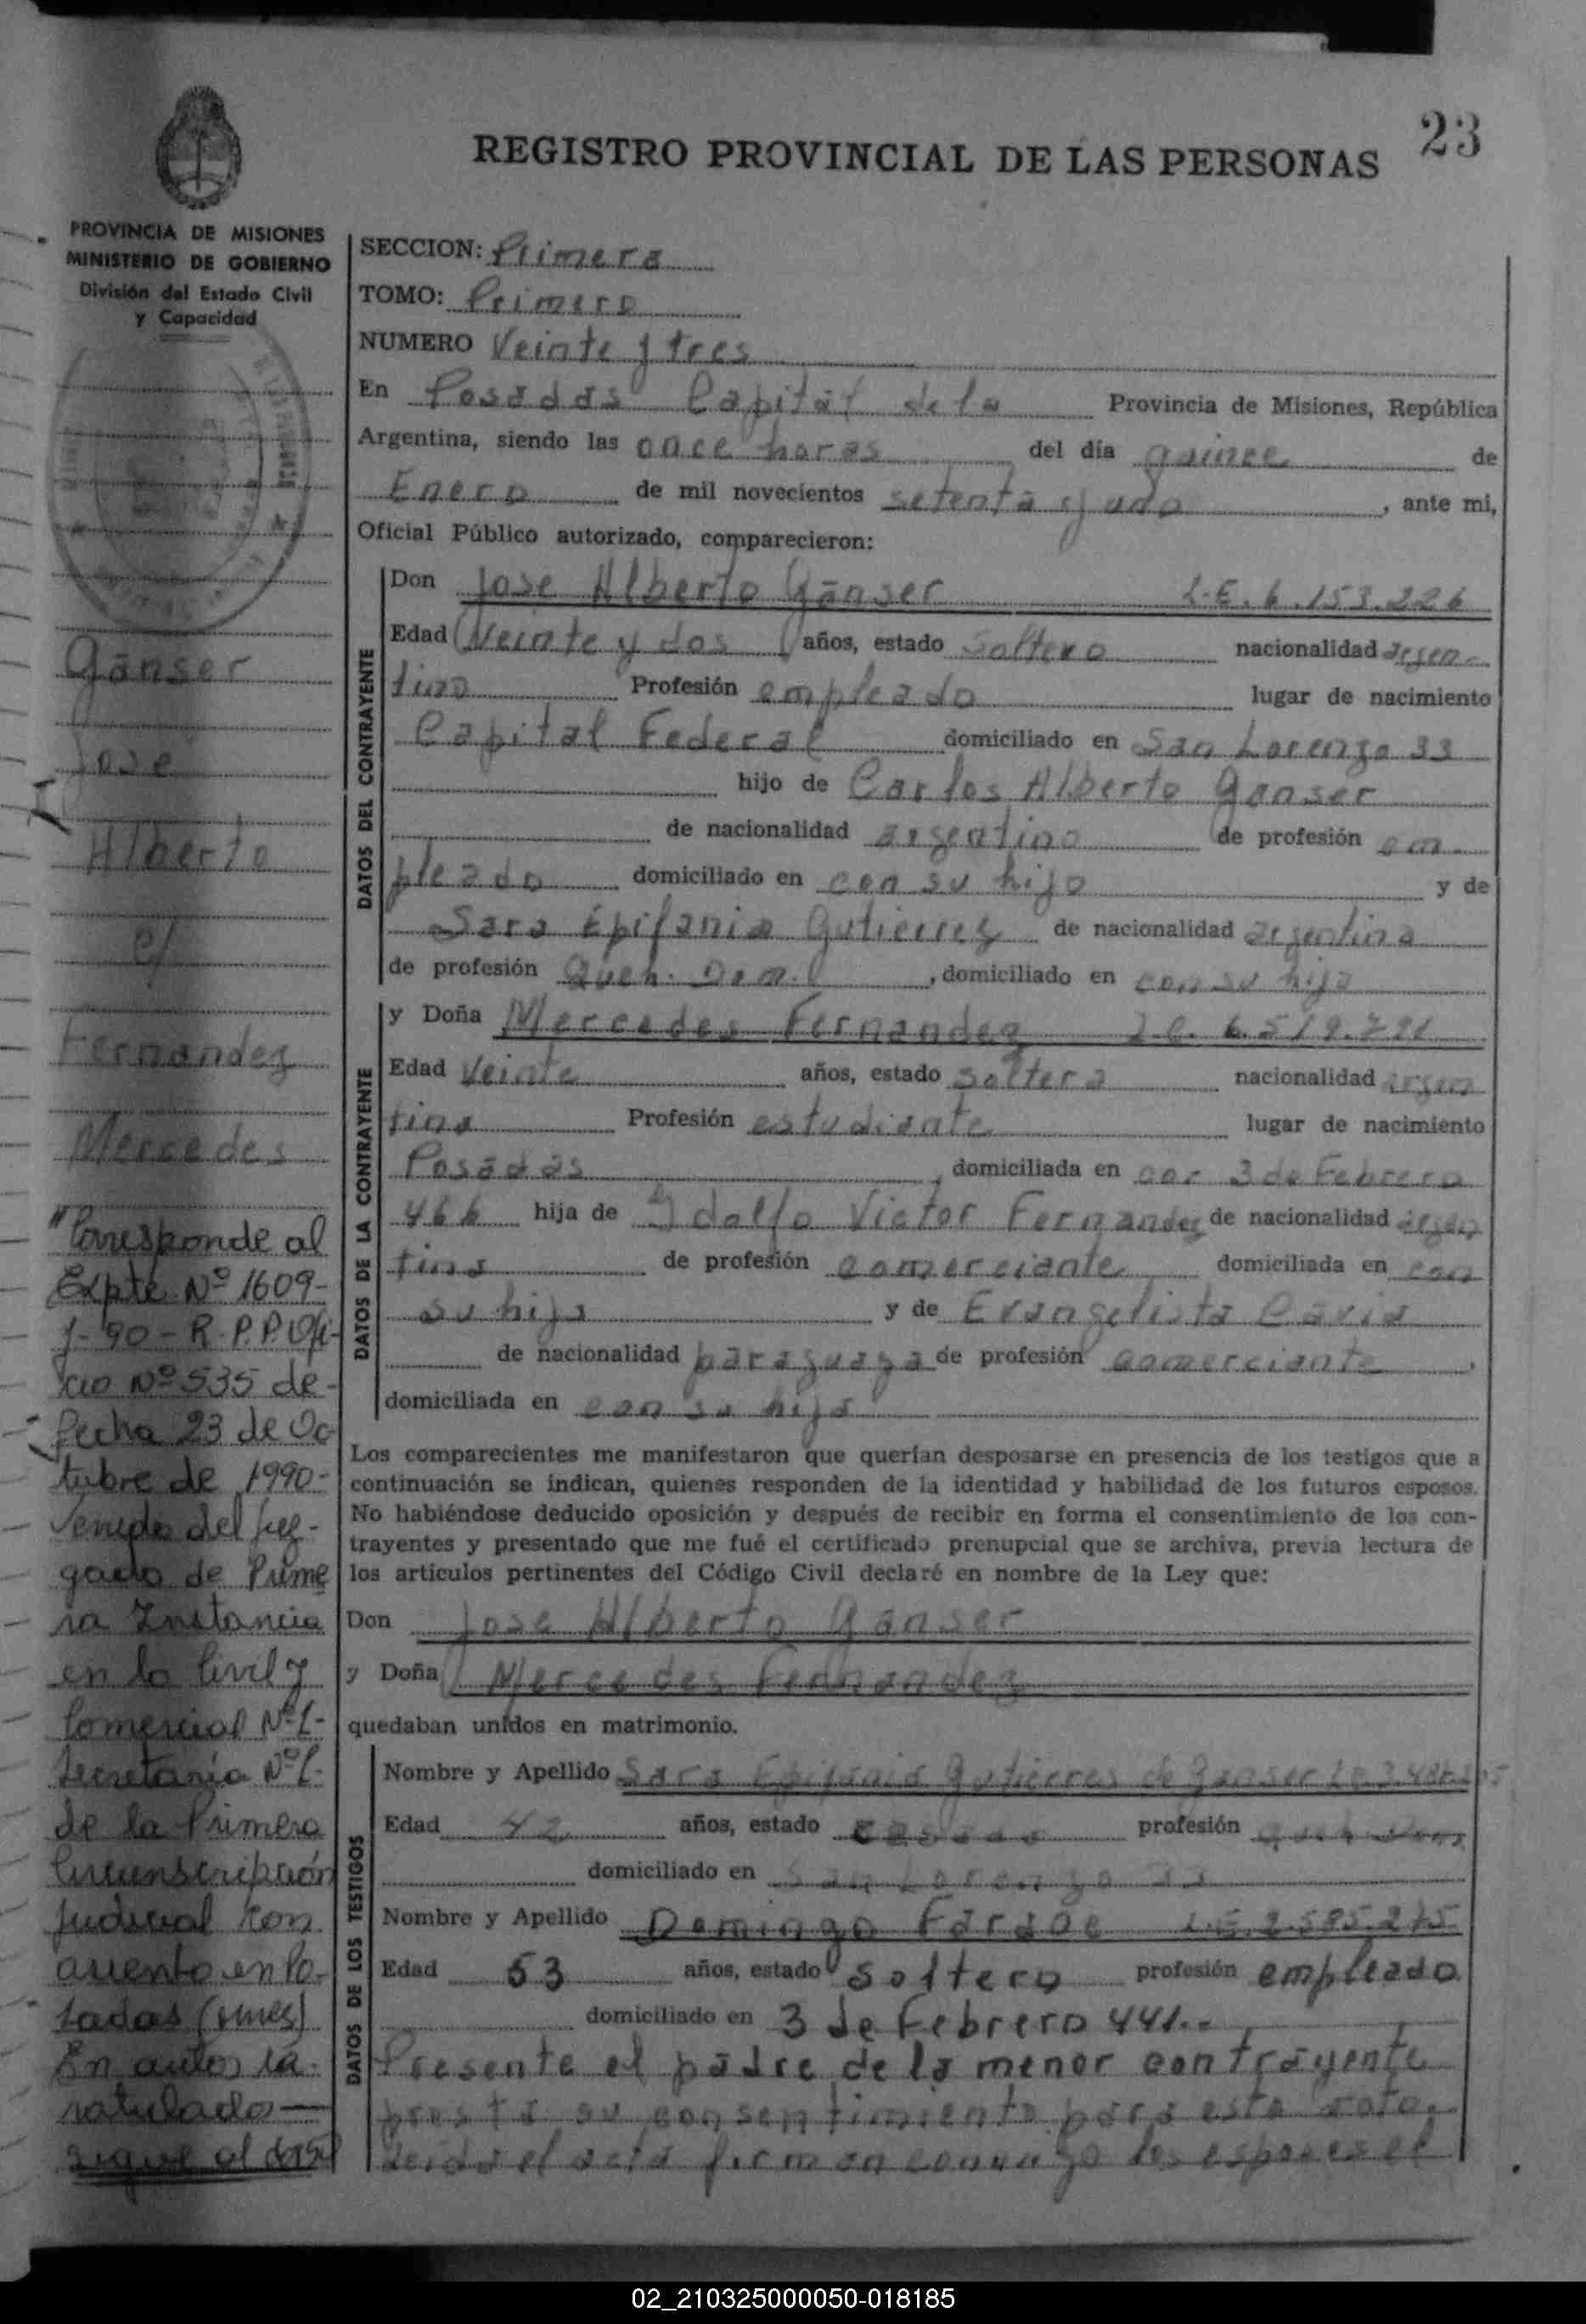 23
REGISTRO PROVINCIAL DE LAS PERSONAS
PROVINCIA DE MISIONES
MINISTERIO DE GOBIERNO
División del Estado Civil
y Capacidad
Gänser
José
Alberto
c/
Fernandez
Mercedes
"Corresponde al
Expte Nº 1609-
1-90-R.P.P. Ofi-
cio Nº 535 de-
fecha 23 de Oc
tubre de 1990-
Venido del Juz-
gado de Prime
ra Instancia
en lo Civil y
Comercial Nº 1-
Secretaría Nº 1-
de la Primera
Circunscripción
Judicial con
asiento en Po-
sadas (mnes)
En autos ca-
ratulado—
sigue al dorso
SECCION: Primera
TOMO: Primero
NUMERO Veinte y tres
En Posadas Capital de la Provincia de Misiones, República
Argentina, siendo las once horas del día quince de
Enero de mil novecientos setenta y uno, ante mi,
Oficial Público autorizado, comparecieron:
DATOS DEL CONTRAYENTE
Don Jose Alberto Gänser L.E. 6.153.226
Edad Veinte y dos años, estado Soltero nacionalidad argen-
tino Profesión empleado lugar de nacimiento
Capital Federal domiciliado en San Lorenzo 33
hijo de Carlos Alberto Ganser
de nacionalidad argentino de profesión em-
pleado domiciliado en con su hijo y de
Sara Epifania Gutierrez de nacionalidad argentina
de profesión Queh. Dom., domiciliado en con su hijo
DATOS DE LA CONTRAYENTE
y Doña Mercedes Fernandez
Edad Veinte años, estado Soltera nacionalidad argen
tina Profesión estudiante lugar de nacimiento
Posadas, domiciliada en 3 de Febrero
466 hija de Idolfo Victor Fernandez de nacionalidad argen
tino de profesión comerciante domiciliada en con
su hija y de Evangelista
de nacionalidad paraguaya de profesión comerciante,
domiciliada en con su hija
Los comparecientes me manifestaron que querían desposarse en presencia de los testigos que a
continuación se indican, quienes responden de la identidad y habilidad de los futuros esposos.
No habiéndose deducido oposición y después de recibir en forma el consentimiento de los con-
trayentes y presentado que me fué el certificado prenupcial que se archiva, previa lectura de
los artículos pertinentes del Código Civil declaré en nombre de la Ley que:
Don Jose Alberto Gänser
y Doña Mercedes Fernandez
quedaban unidos en matrimonio.
DATOS DE LOS TESTIGOS
Nombre y Apellido Sara Epifania Gutierres de Ganser
Edad 42 años, estado casada profesión
domiciliado en San Lorenzo 33
Nombre y Apellido Domingo L.E. 2.585.275
Edad 53 años, estado Soltero profesión empleado
domiciliado en 3 de Febrero 441..
Presente el padre de la menor contrayente
presta su consentimiento para este acto.
Leida el acta firman conmigo los esposos el
02_210325000050-018185